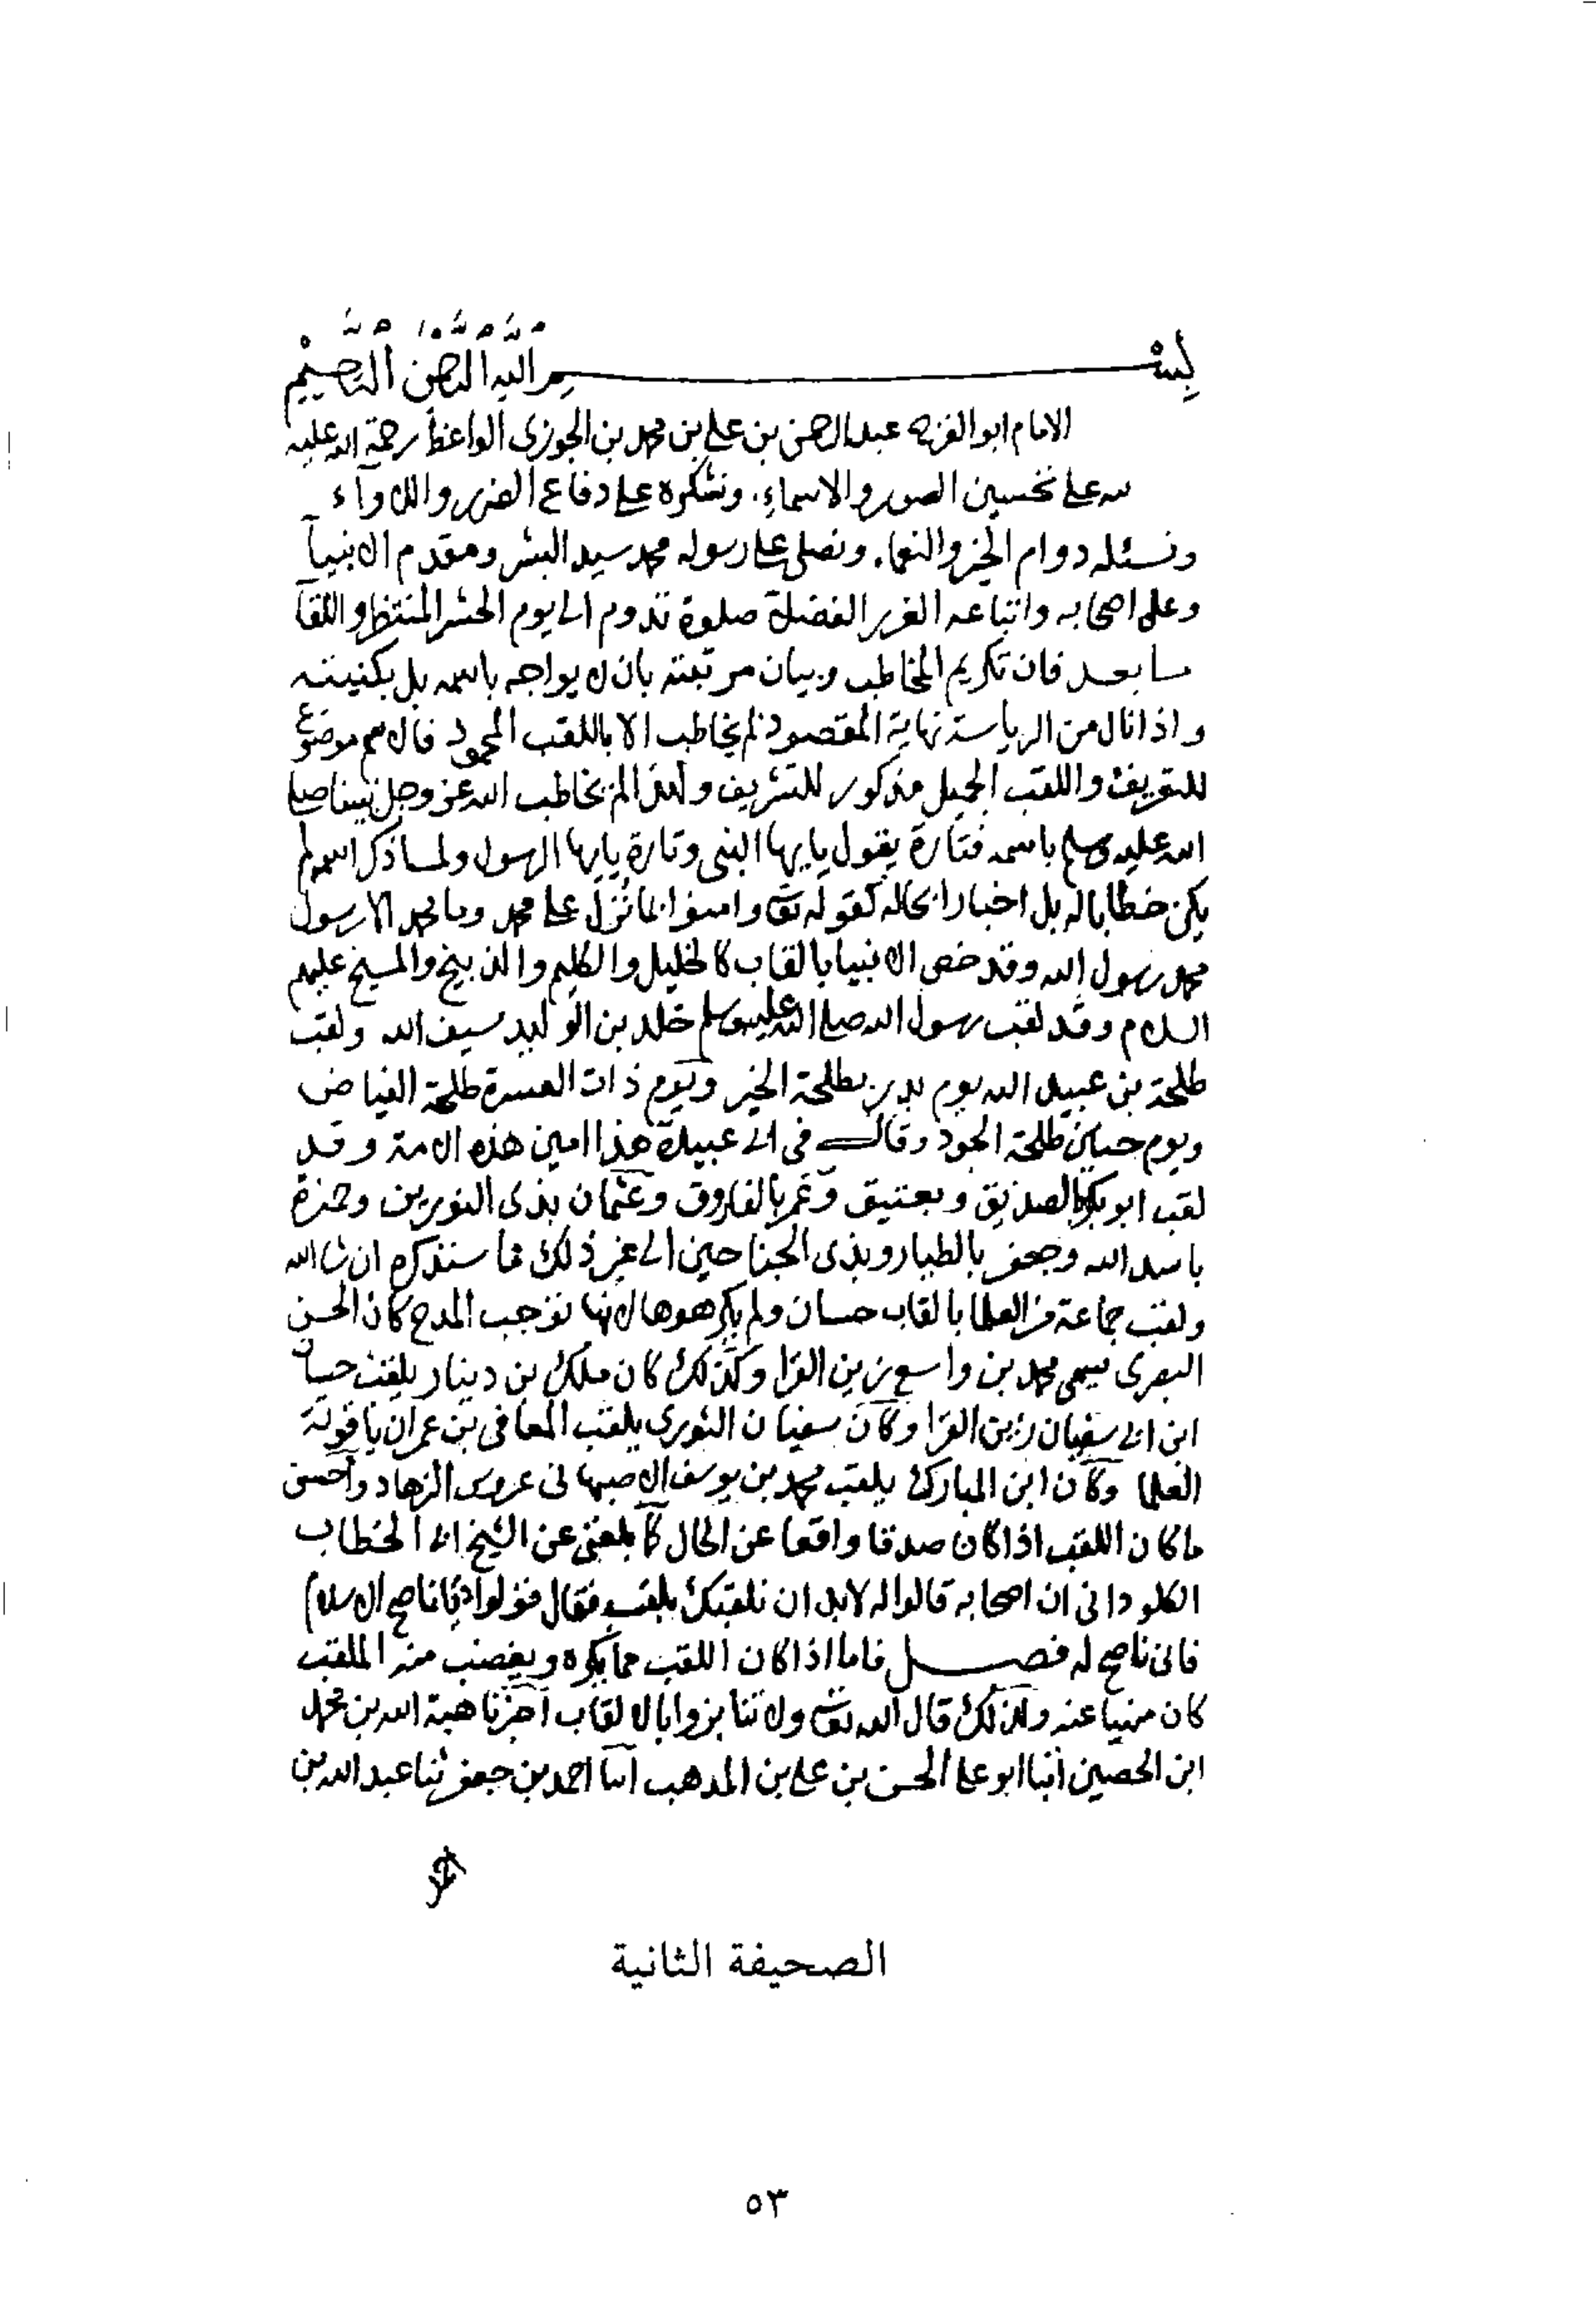 بسم الله الرحمن الرحيم
الامام ابو الفرج عبد الرحمن بن علي بن محمد بن الجوزى الواعظ رحمة الله عليه
لله على تحسين الصور والاسماء، ونشكره على دفاع الضرر واللاوآء
ونسئله دوام الخير والنعماء، ونصلى على رسوله محمد سيد البشر ومقدم الانبيآ
وعلى اصحابه واتباعه الغرر الفضلاء صلوة تدوم الى يوم الحشر المنتظر واللقآ
ما بعد فان تكريم المخاطب وبيان مرتبته بان لا يواجه باسمه بل بكنيته
واذا نال من الرياسة نهاية المقصود لم يخاطب الا باللقب المحمود فالاسم موضوع
للتعريف واللقب الجميل مذكور للتشريف ولهذا لم يخاطب الله عز وجل نبينا صلى
الله عليه وسلم باسمه فتارة يقول يايها النبى وتارة يايها الرسول ولما ذكر اسمه لم
يكن خطابا له بل اخبارا بحاله كقوله تعالى وامنوا بما نزل على محمد وما محمد الا رسول
محمد رسول الله وقد خص الانبيا بالقاب كالخليل والكليم والذبيح والمسيح عليهم
السلام وقد لقب رسول الله صلى الله عليه وسلم خلد بن الوليد سيف الله ولقب
طلحة بن عبيد الله يوم بدر بطلحة الخير ويوم ذات العسرة طلحة الفياض
ويوم حنين طلحة الجود وقال فى ابى عبيدة هذا امين هذه الامة وقد
لقب ابو بكر بالصديق وبعتيق وعمر بالفاروق وعثمان بذى النورين وحمزة
باسد الله وجعفر بالطيار وبذى الجناحين الى غير ذلك مما سنذكره ان شا الله
ولقب جماعة من العلما بالقاب حسان ولم يكرهوها لانها توجب المدح كان الحسن
البصرى يسمى محمد بن واسع زين القرا وكذلك كان ملك بن دينار يلقب حسان
ابن ابى سفيان زين القرا وكان سفيان الثورى يلقب المعافى بن عمران ياقوتة
العلما وكان ابن المبارك يلقب محمد بن يوسف الاصبهانى عروس الزهاد واحسن
ما كان اللقب اذا كان صدقا واقعا عن الحال كما بلغنى عن الشيخ ابى الخطاب
الكلوذانى ان اصحابه قالوا له لابد ان نلقبك بلقب فقال فقولوا ناصح الاسلام
فانى ناصح له فصل فاما اذا كان اللقب مما يكره ويغضب منه الملقب
كان منهيا عنه ولذلك قال الله تعالى ولا تنابزوا بالالقاب اخبرنا هبة الله بن محمد
ابن الحصين انبا ابو على الحسن بن على بن المذهب انبا احمد بن جعفر ثنا عبد الله بن
الصحيفة الثانية
٥٣